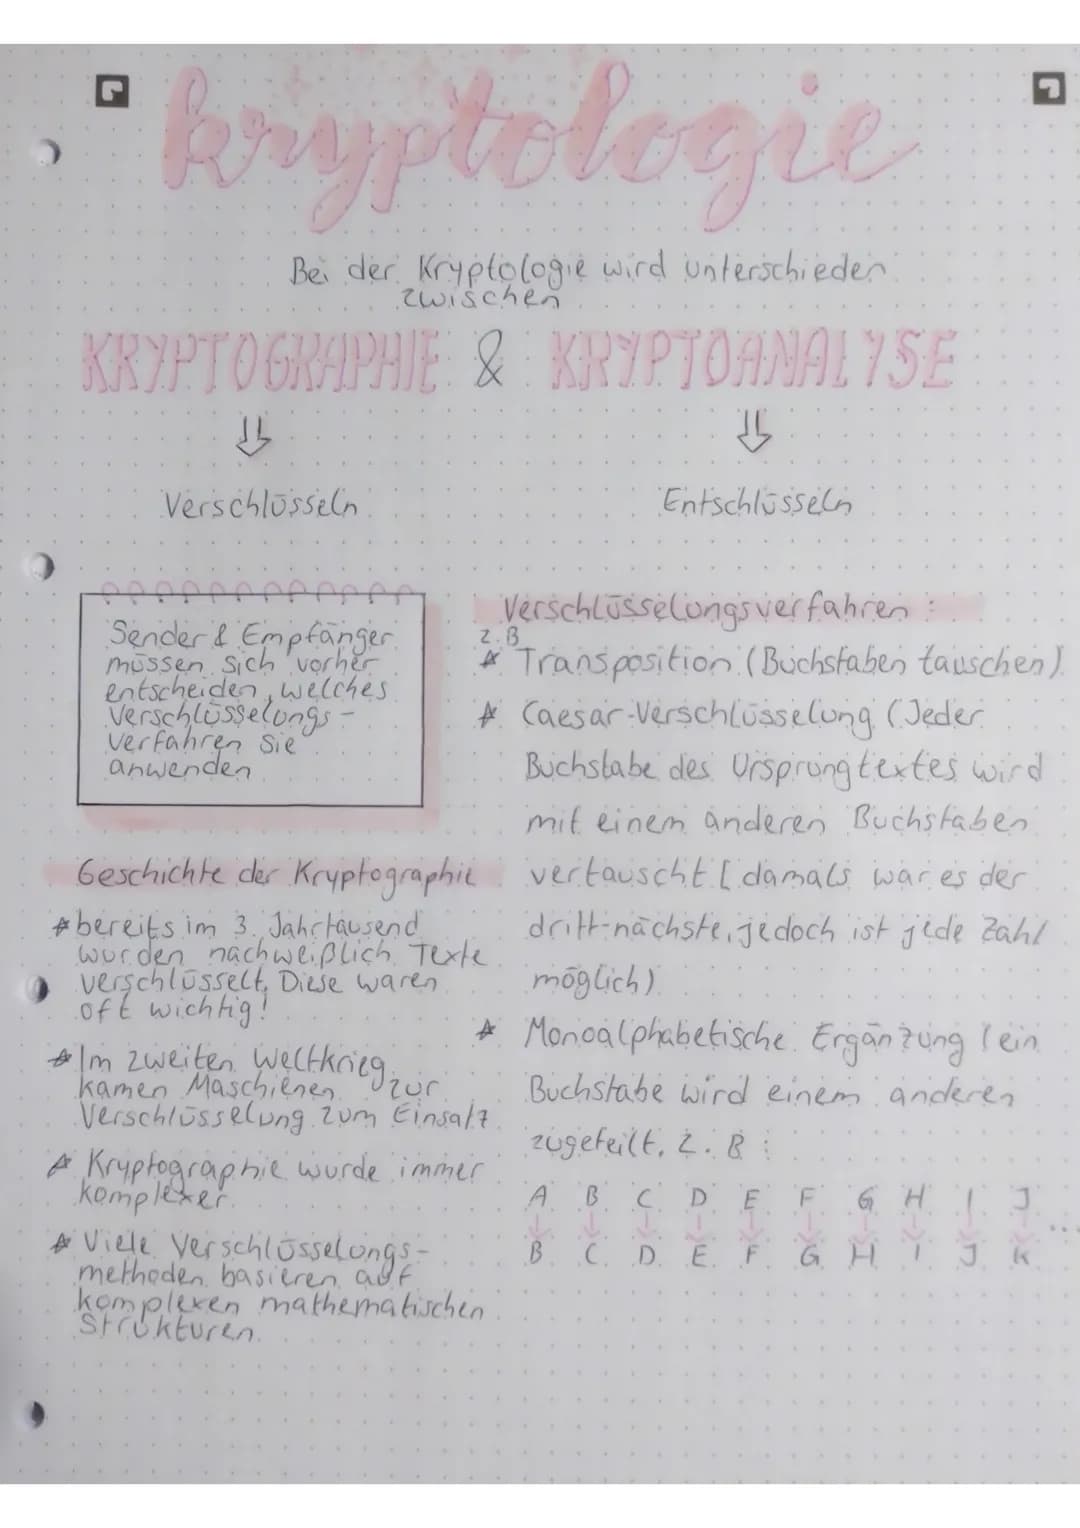 kryptologie
Bei der Kryptologie wird unterschieden
zwischen
KRYPTOGRAPHIE & KRYPTOANALYSE
Verschlüsseln
Entschlüsseln
Sender & Empfänger
müssen sich vorher
entscheiden, welches
Verschlüsselungs-
verfahren sie
anwenden
Geschichte der Kryptographie
bereits im 3. Jahrtausend
wurden nachweißlich Texte
verschlüsselt. Diese waren
oft wichtig!
Im zweiten Weltkrieg
kamen Maschienen zur
Verschlüsselung zum Einsatz
Kryptographie wurde immer
komplexer.
Viele Verschlüsselungs-
methoden basieren auf
komplexen mathematischen
Strukturen.
Verschlüsselungsverfahren:
z.B
Transposition (Buchstaben tauschen)
Caesar-Verschlüsselung (Jeder
Buchstabe des Ursprungtextes wird
mit einem anderen Buchstaben
vertauscht [damals war es der
dritt-nächste, jedoch ist jede Zahl
möglich)
Monoalphabetische Ergänzung (ein
Buchstabe wird einem anderen
zugeteilt, z.B:
A B C D E F G H I J
...
B C D E F G H I J K